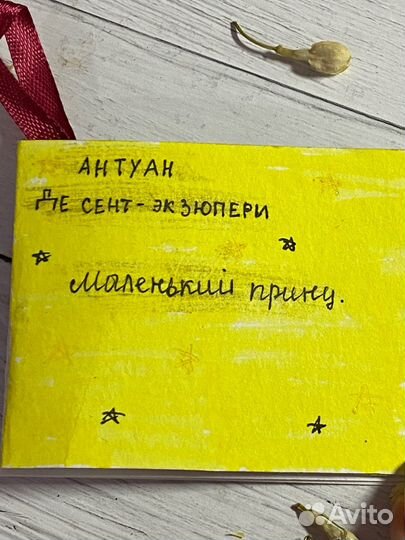 АНТУАН
ДЕ СЕНТ-ЭКЗЮПЕРИ
Маленький принц.
Avito